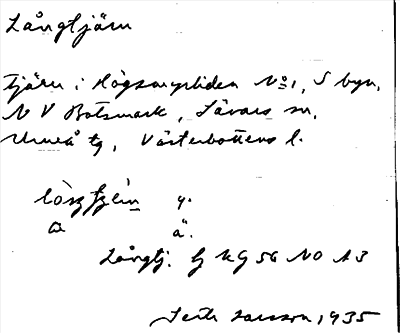 Långtjärn
tjärn i Högsmyrliden No 1, S byn,
N V Botsmark, Sävars sn,
Umeå tg, Västerbottens l.
y.
a ä.
Långtj. Gj KG 56 NO A3
Seth Larsson, 1935